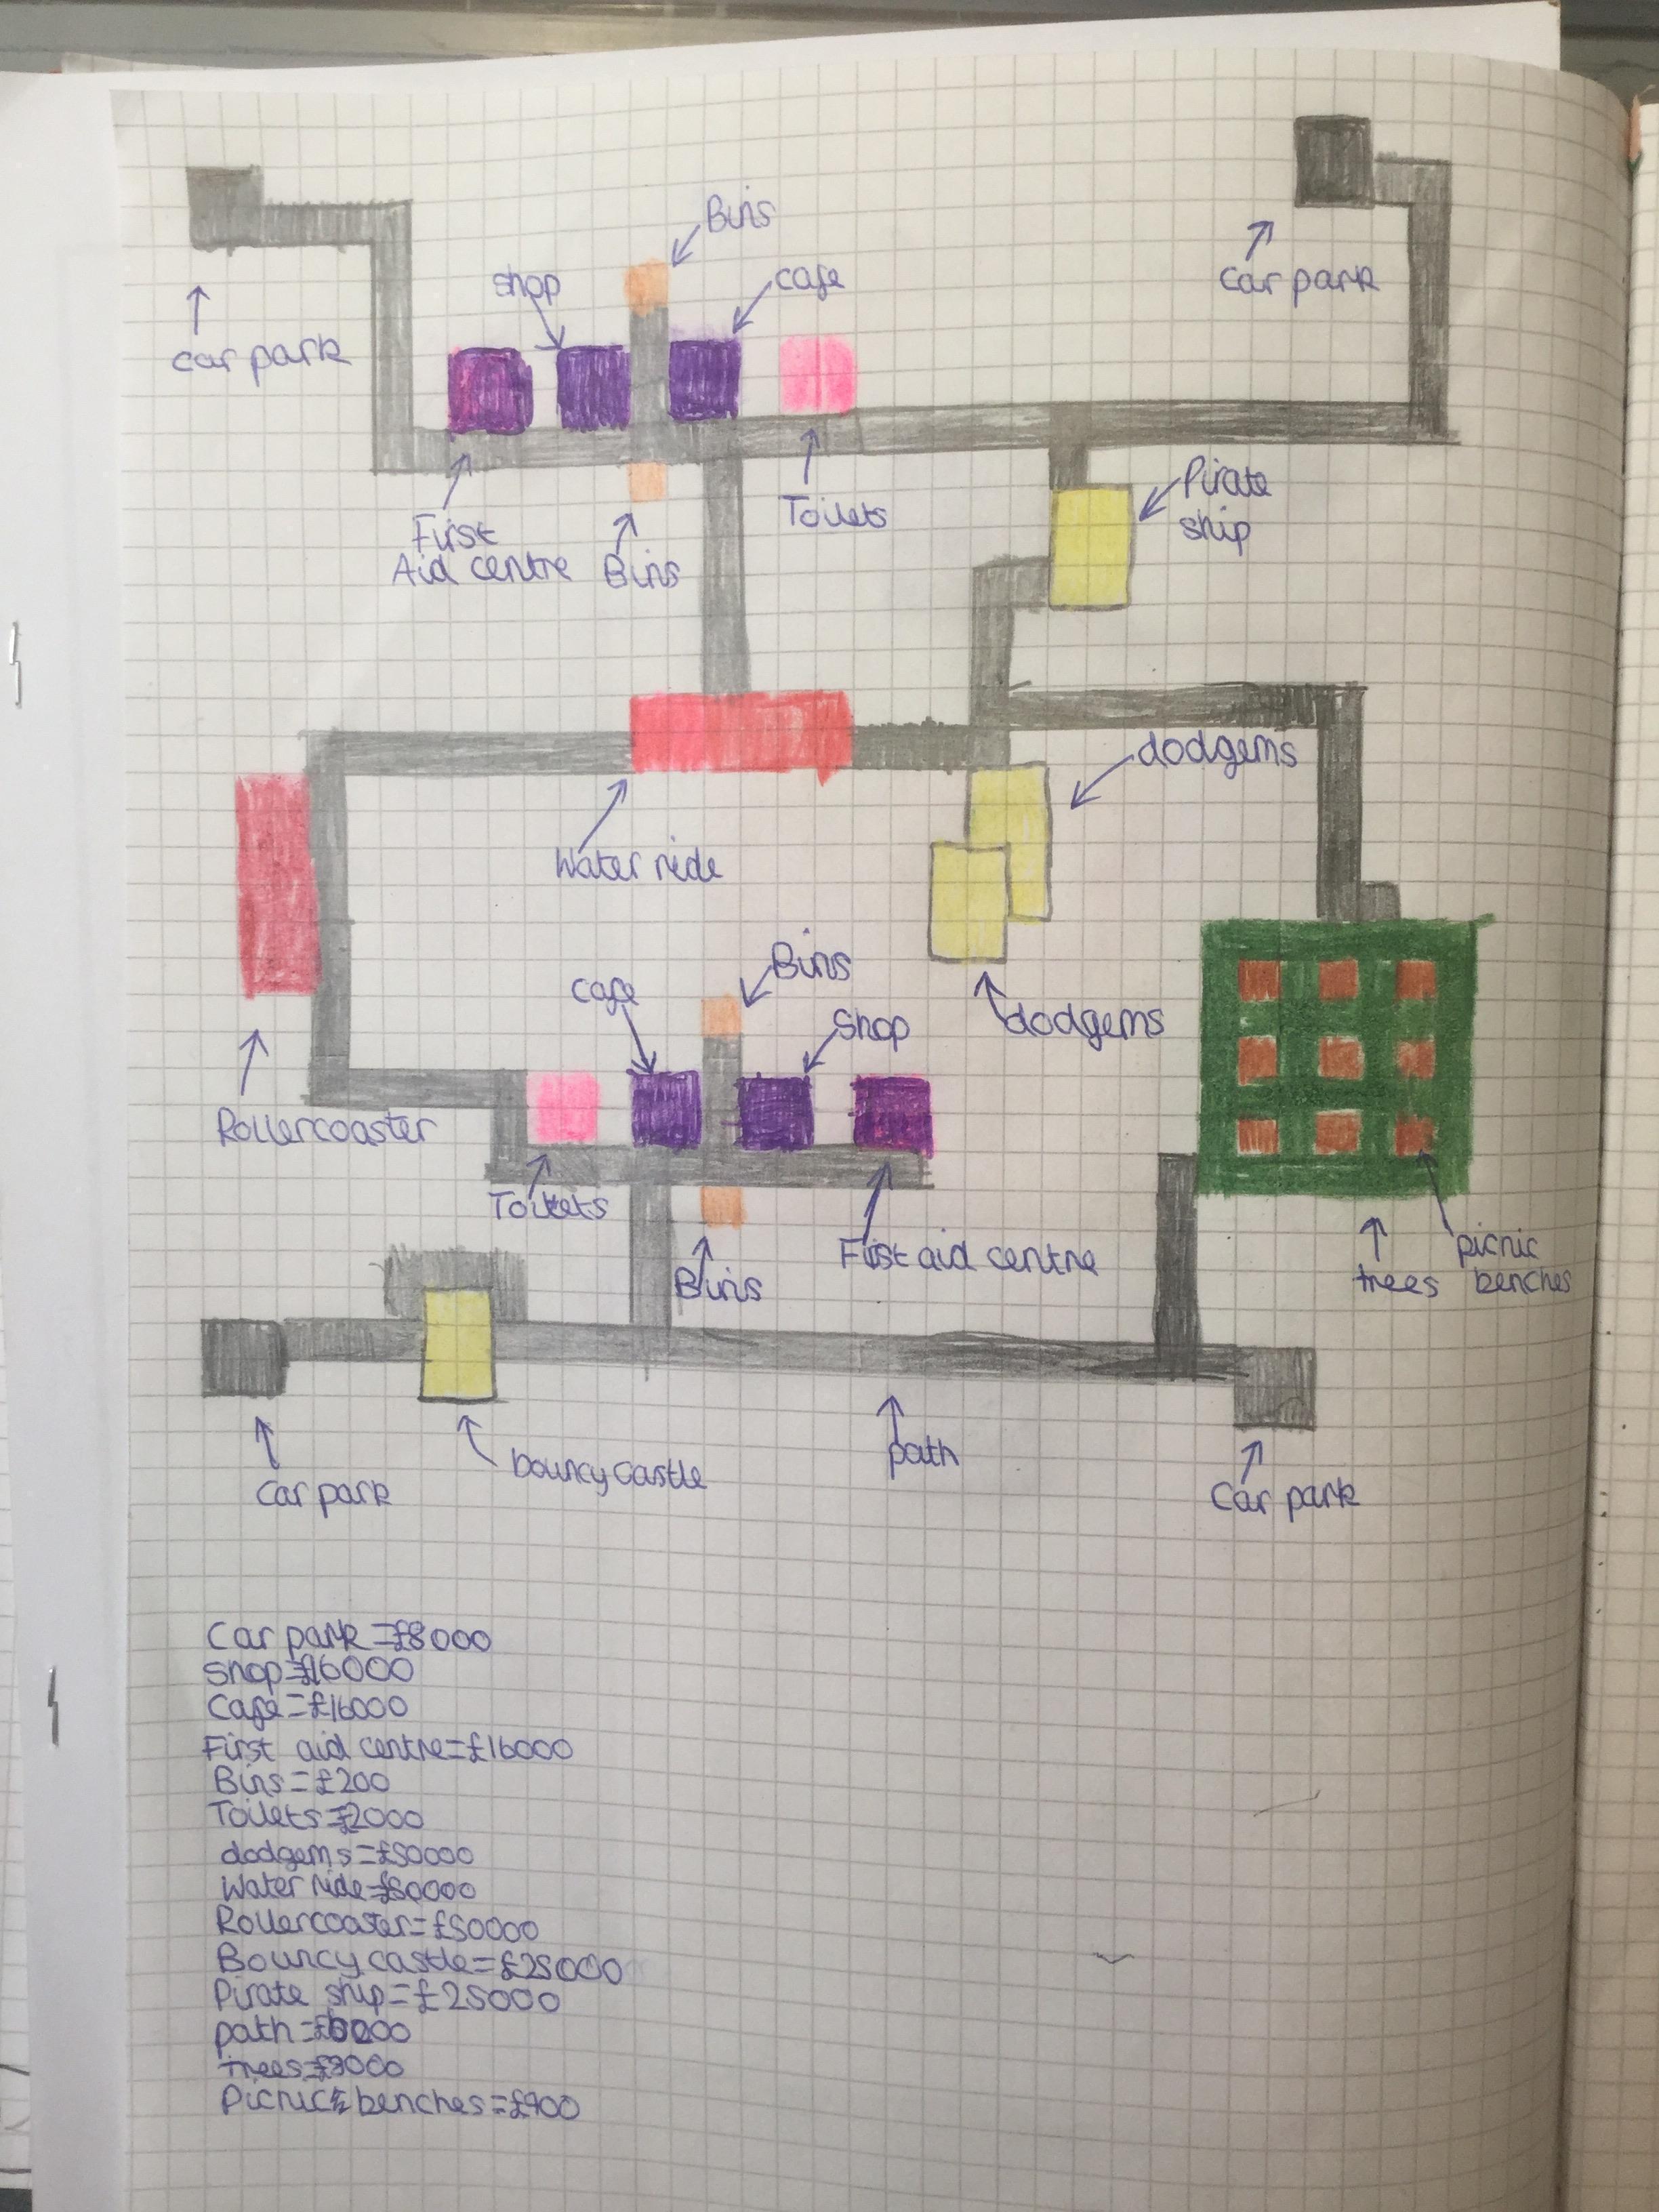 Bins
shop
cafe
car park
car park
Pirate
ship
Toilets
First
Aid centre
Bins
dodgems
Water ride
Bins
cafe
shop
dodgems
Rollercoaster
Toilets
First aid centre
picnic
benches
trees
Bins
path
bouncy castle
Car park
Car park
Car park = £8000
shop = £16000
Cafe = £16000
First aid centre = £16000
Bins = £200
Toilets = £2000
dodgems = £50000
Water ride =
Rollercoaster = £50000
Bouncy castle = £25000
Pirate ship = £25000
path =
trees =
Picnic benches = £900